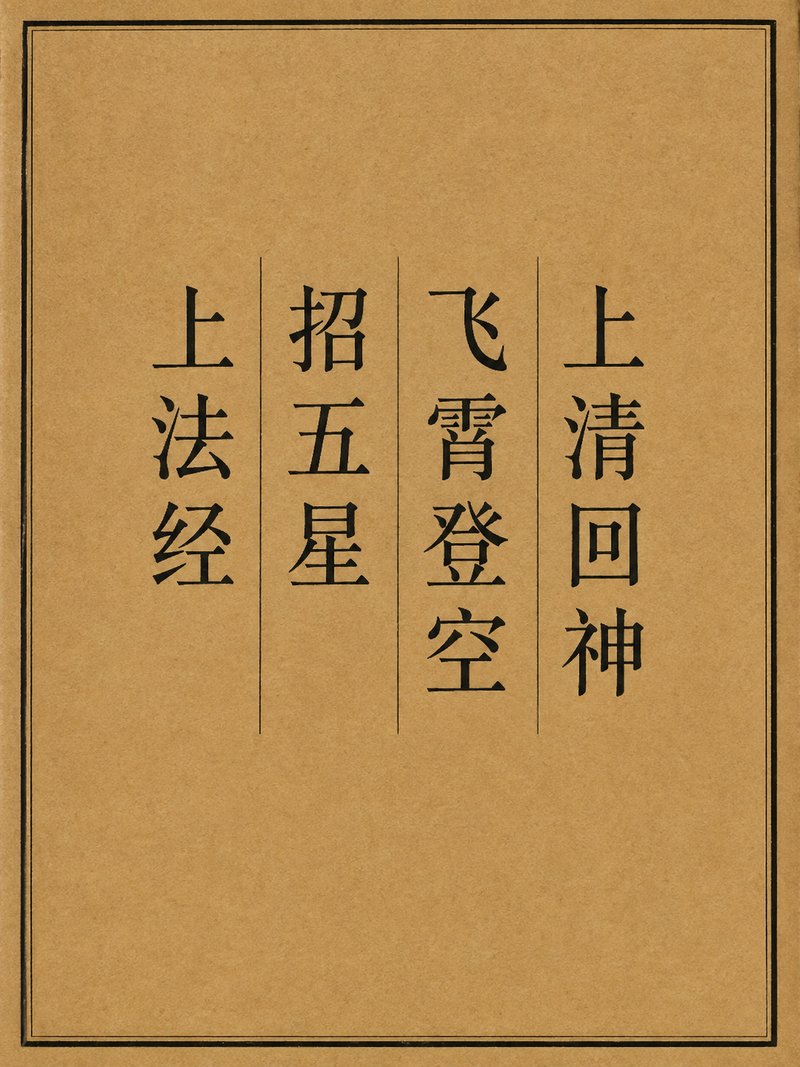 上清回神
飞霄登空
招五星
上法经